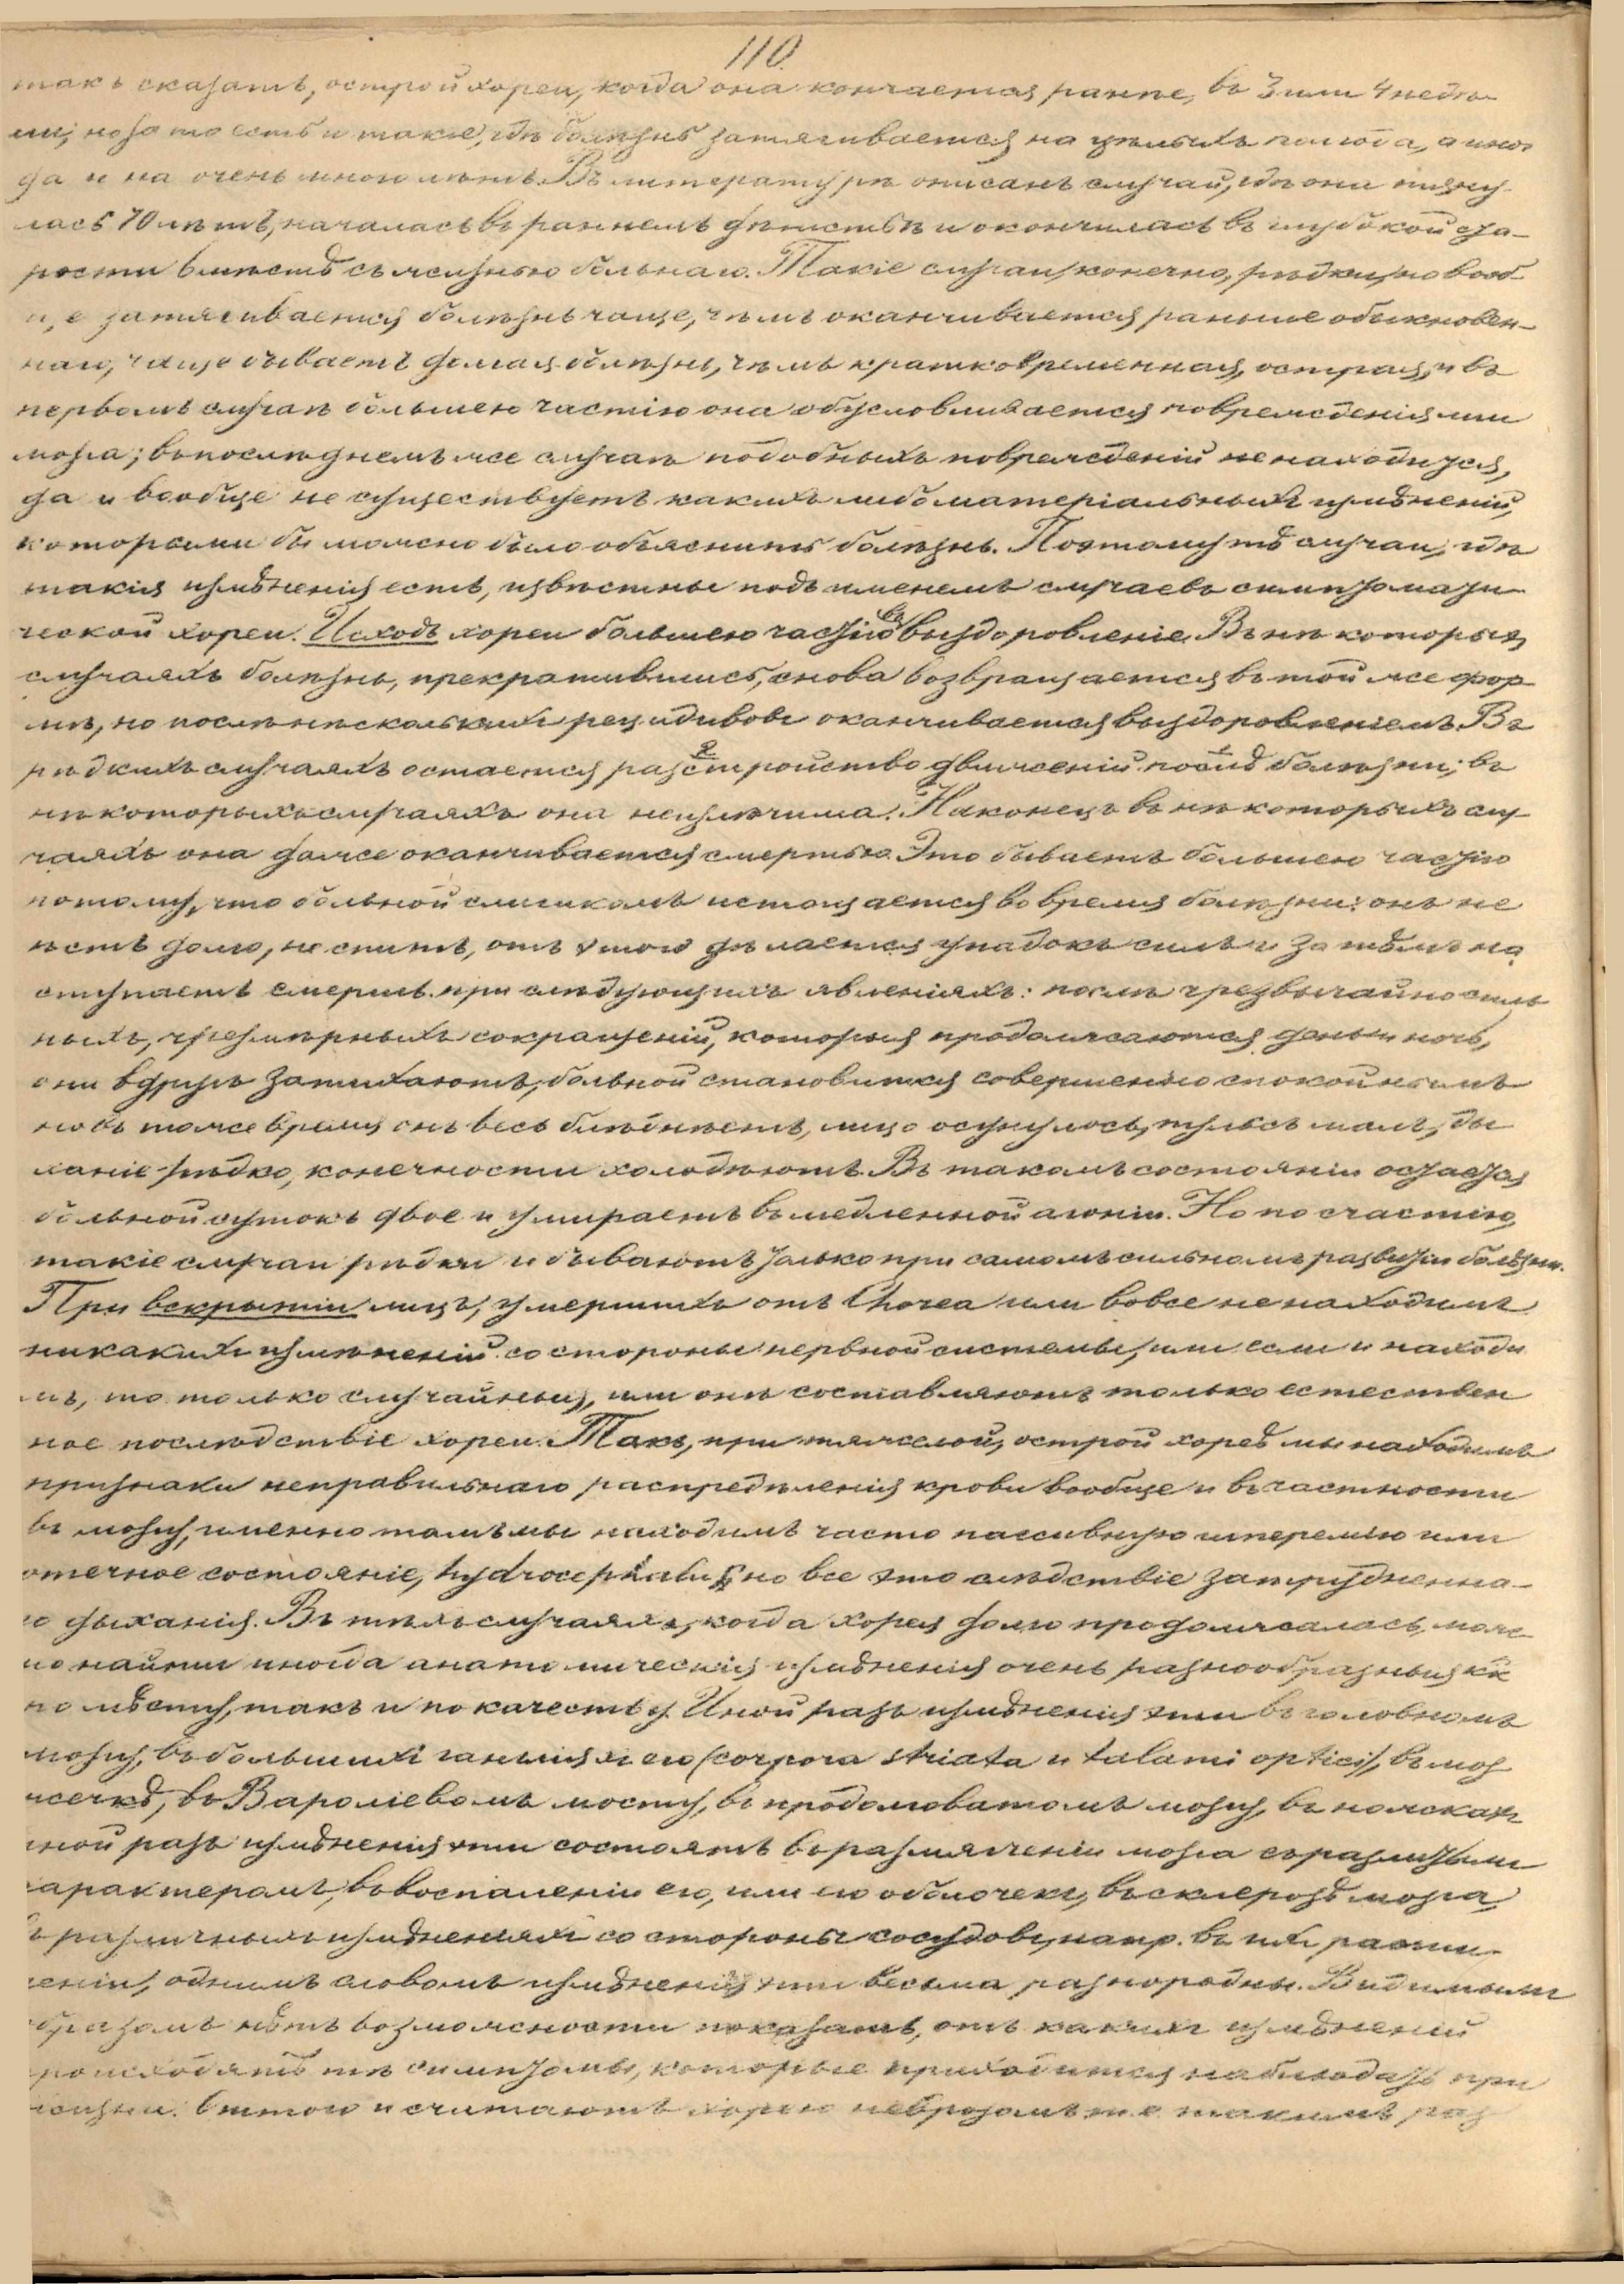 110.
такъ сказать, острой хореи, когда она кончается ранѣе, въ 3 или 4 недѣ-
ли; но за то есть и такіе, гдѣ болѣзнь затягивается на цѣлыхъ полгода, а иног
да и на очень много лѣтъ. Въ литературѣ описанъ случай, гдѣ она тяну-
лась 70 лѣтъ, началась въ раннемъ дѣтствѣ и окончилась въ глубокой ста-
рости вмѣстѣ съ жизнью больнаго. Такіе случаи, конечно, рѣдки, но вооб
ще затягивается болѣзнь чаще, чѣмъ оканчивается раньше обыкновен-
наго, чаще бываетъ долгая болѣзнь, чѣмъ кратковременная, острая, и въ
первомъ случаѣ большею частію она обусловливается поврежденіями
мозга; въ послѣднемъ же случаѣ подобныхъ поврежденій не находится,
да и вообще не существуетъ какихъ либо матеріальныхъ измѣненій,
которыми бы можно было объяснить болѣзнь. Поэтому тѣ случаи, гдѣ
такія измѣненія есть, извѣстны подъ именемъ случаевъ симптомати-
ческой хореи. Исходъ хореи большею частію въ выздоровленіе. Въ нѣкоторыхъ
случаяхъ болѣзнь, прекратившись, снова возвращается въ той же фор
мѣ, но послѣ нѣсколькихъ рецидивовъ оканчивается выздоровленіемъ. Въ
рѣдкихъ случаяхъ остается разстройство движеній послѣ болѣзни; въ
нѣкоторыхъ случаяхъ она неизлѣчима. Наконецъ въ нѣкоторыхъ слу-
чаяхъ она даже оканчивается смертью. Это бываетъ большею частію
потому, что больной слишкомъ истощается во время болѣзни: онъ не
ѣстъ долго, не спитъ, отъ этого дѣлается упадокъ силъ и затѣмъ на
ступаетъ смерть при слѣдующихъ явленіяхъ: послѣ чрезвычайно силь
ныхъ, чрезмѣрныхъ сокращеній, которыя продолжаются день и ночь,
они вдругъ затихаютъ, больной становится совершенно спокойнымъ
но въ тоже время онъ весь блѣднѣетъ, лицо осунулось, пульсъ малъ, ды
ханіе рѣдко, конечности холодѣютъ. Въ такомъ состояніи остается
больной сутокъ двое и умираетъ въ медленной агоніи. Но по счастію,
такіе случаи рѣдки и бываютъ только при самомъ сильномъ развитіи болѣзни.
При вскрытіи лицъ, умершихъ отъ Chorea или вовсе не находимъ
никакихъ измѣненій со стороны нервной системы, или если и находи
мъ, то только случайныя, или онѣ составляютъ только естествен
ное послѣдствіе хореи. Такъ, при тяжелой, острой хореѣ мы находимъ
признаки неправильнаго распредѣленія крови вообще и въ частности
въ мозгу, именно тамъ мы находимъ часто пассивную гиперемію или
отечное состояніе, hydrocephalus, но все это слѣдствіе затрудненна-
го дыханія. Въ тѣхъ случаяхъ, когда хорея долго продолжалась, мож
но найти иногда анатомическія измѣненія очень разнообразныя какъ
по мѣсту, такъ и по качеству. Иной разъ измѣненія эти въ головномъ
мозгу, въ большихъ гангліяхъ его (corpora striata и talami optici), въ моз
жечкѣ, въ Вароліевомъ мосту, въ продолговатомъ мозгу,
иной разъ измѣненія эти состоятъ въ размягченіи мозга съ различнымъ
характеромъ, въ воспаленіи его, или его оболочекъ, въ склерозѣ мозга,
въ различныхъ измѣненіяхъ со стороны сосудовъ, напр. въ ихъ расши-
реніи, однимъ словомъ измѣненія эти весьма разнородны. Видимымъ
образомъ нѣтъ возможности показать, отъ какихъ измѣненій
происходятъ тѣ симптомы, которые приходится наблюдать при
жизни. считаютъ хорею неврозомъ